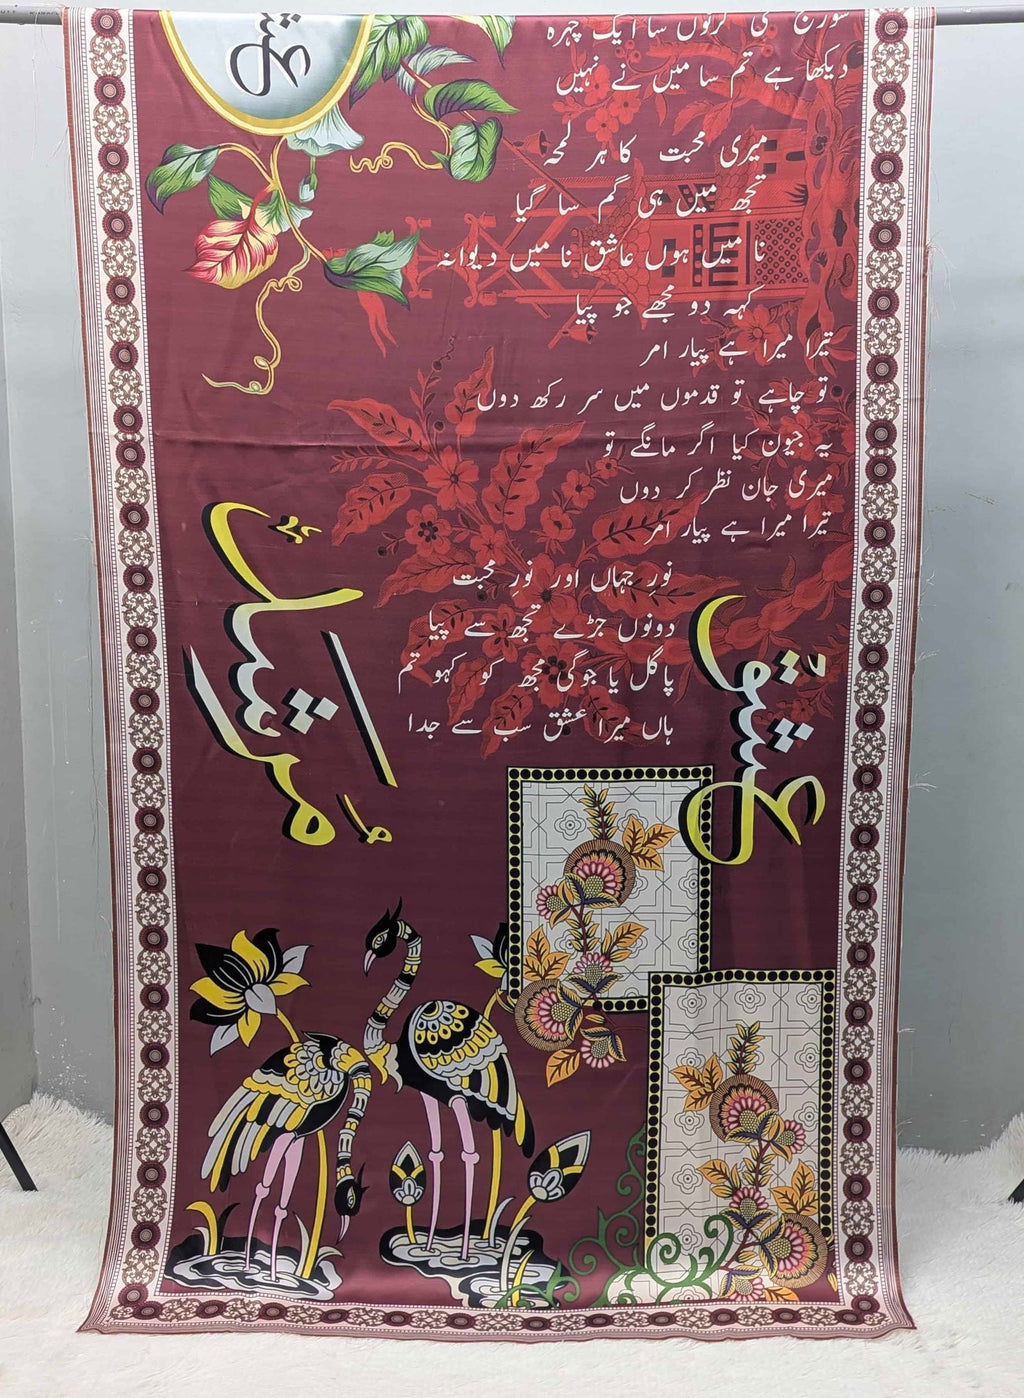 سورج کی کرنوں سا ایک چہرہ
دیکھا ہے تم سا میں نے نہیں
میری محبت کا ہر لمحہ
تجھ میں ہی گم سا گیا
نا میں ہوں عاشق نا میں دیوانہ
کہہ دو مجھے جو پیا
تیرا میرا ہے پیار امر
تو چاہے تو قدموں میں سر رکھ دوں
یہ جیون کیا اگر مانگے تو
میری جان نظر کر دوں
تیرا میرا ہے پیار امر
نورِ جہاں اور نورِ محبت
دونوں جڑے تجھ سے پیا
پاگل یا جوگی مجھ کو کہو تم
ہاں میرا عشق سب سے جدا
عشق
مُرشد
عشق